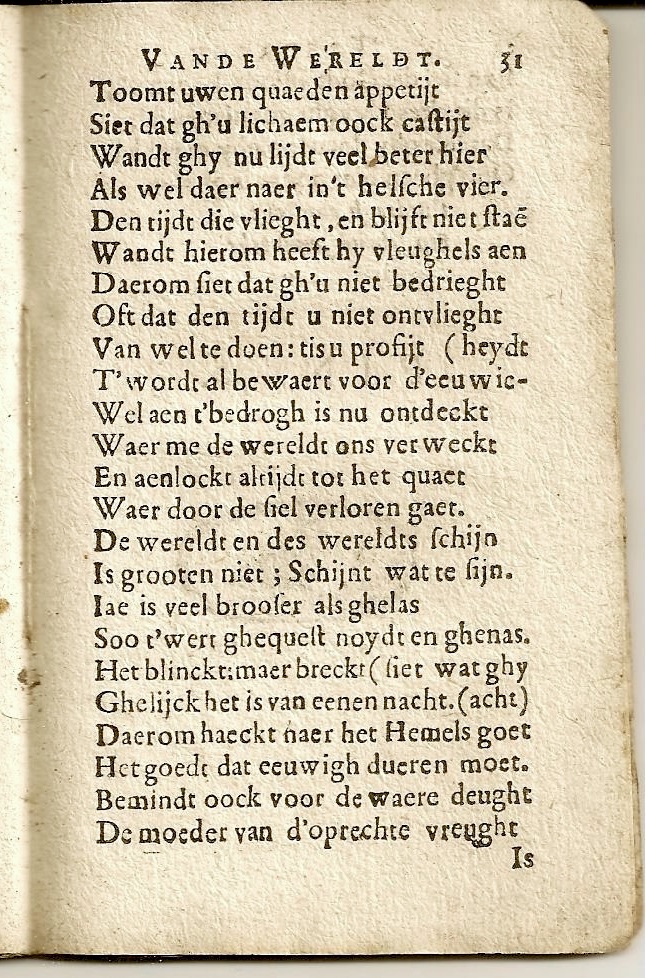 VANDE WERELDT. 31
Toomt uwen quaeden appetijt
Siet dat gh'u lichaem oock caſtijt
Wandt ghy nu lijdt veel beter hier
Als wel daer naer in't helſche vier.
Den tijdt die vlieght, en blijft niet ſtaē
Wandt hierom heeft hy vleughels aen
Daerom ſiet dat gh'u niet bedrieght
Oft dat den tijdt u niet ontvlieght
Van wel te doen: tis u profijt (heydt
T'wordt al bewaert voor d'eeuwic-
Wel aen t'bedrogh is nu ontdeckt
Waer me de wereldt ons verweckt
En aenlockt altijdt tot het quaet
Waer door de ſiel verloren gaet.
De wereldt en des wereldts ſchijn
Is grooten niet; Schijnt wat te ſijn.
Iae is veel brooſer als ghelas
Soo t'wert ghequeſt noydt en ghenas.
Het blinckt: maer breckt (ſiet wat ghy
Ghelijck het is van eenen nacht. (acht)
Daerom haeckt naer het Hemels goet
Het goedt dat eeuwigh dueren moet.
Bemindt oock voor de waere deught
De moeder van d'oprechte vreught
Is